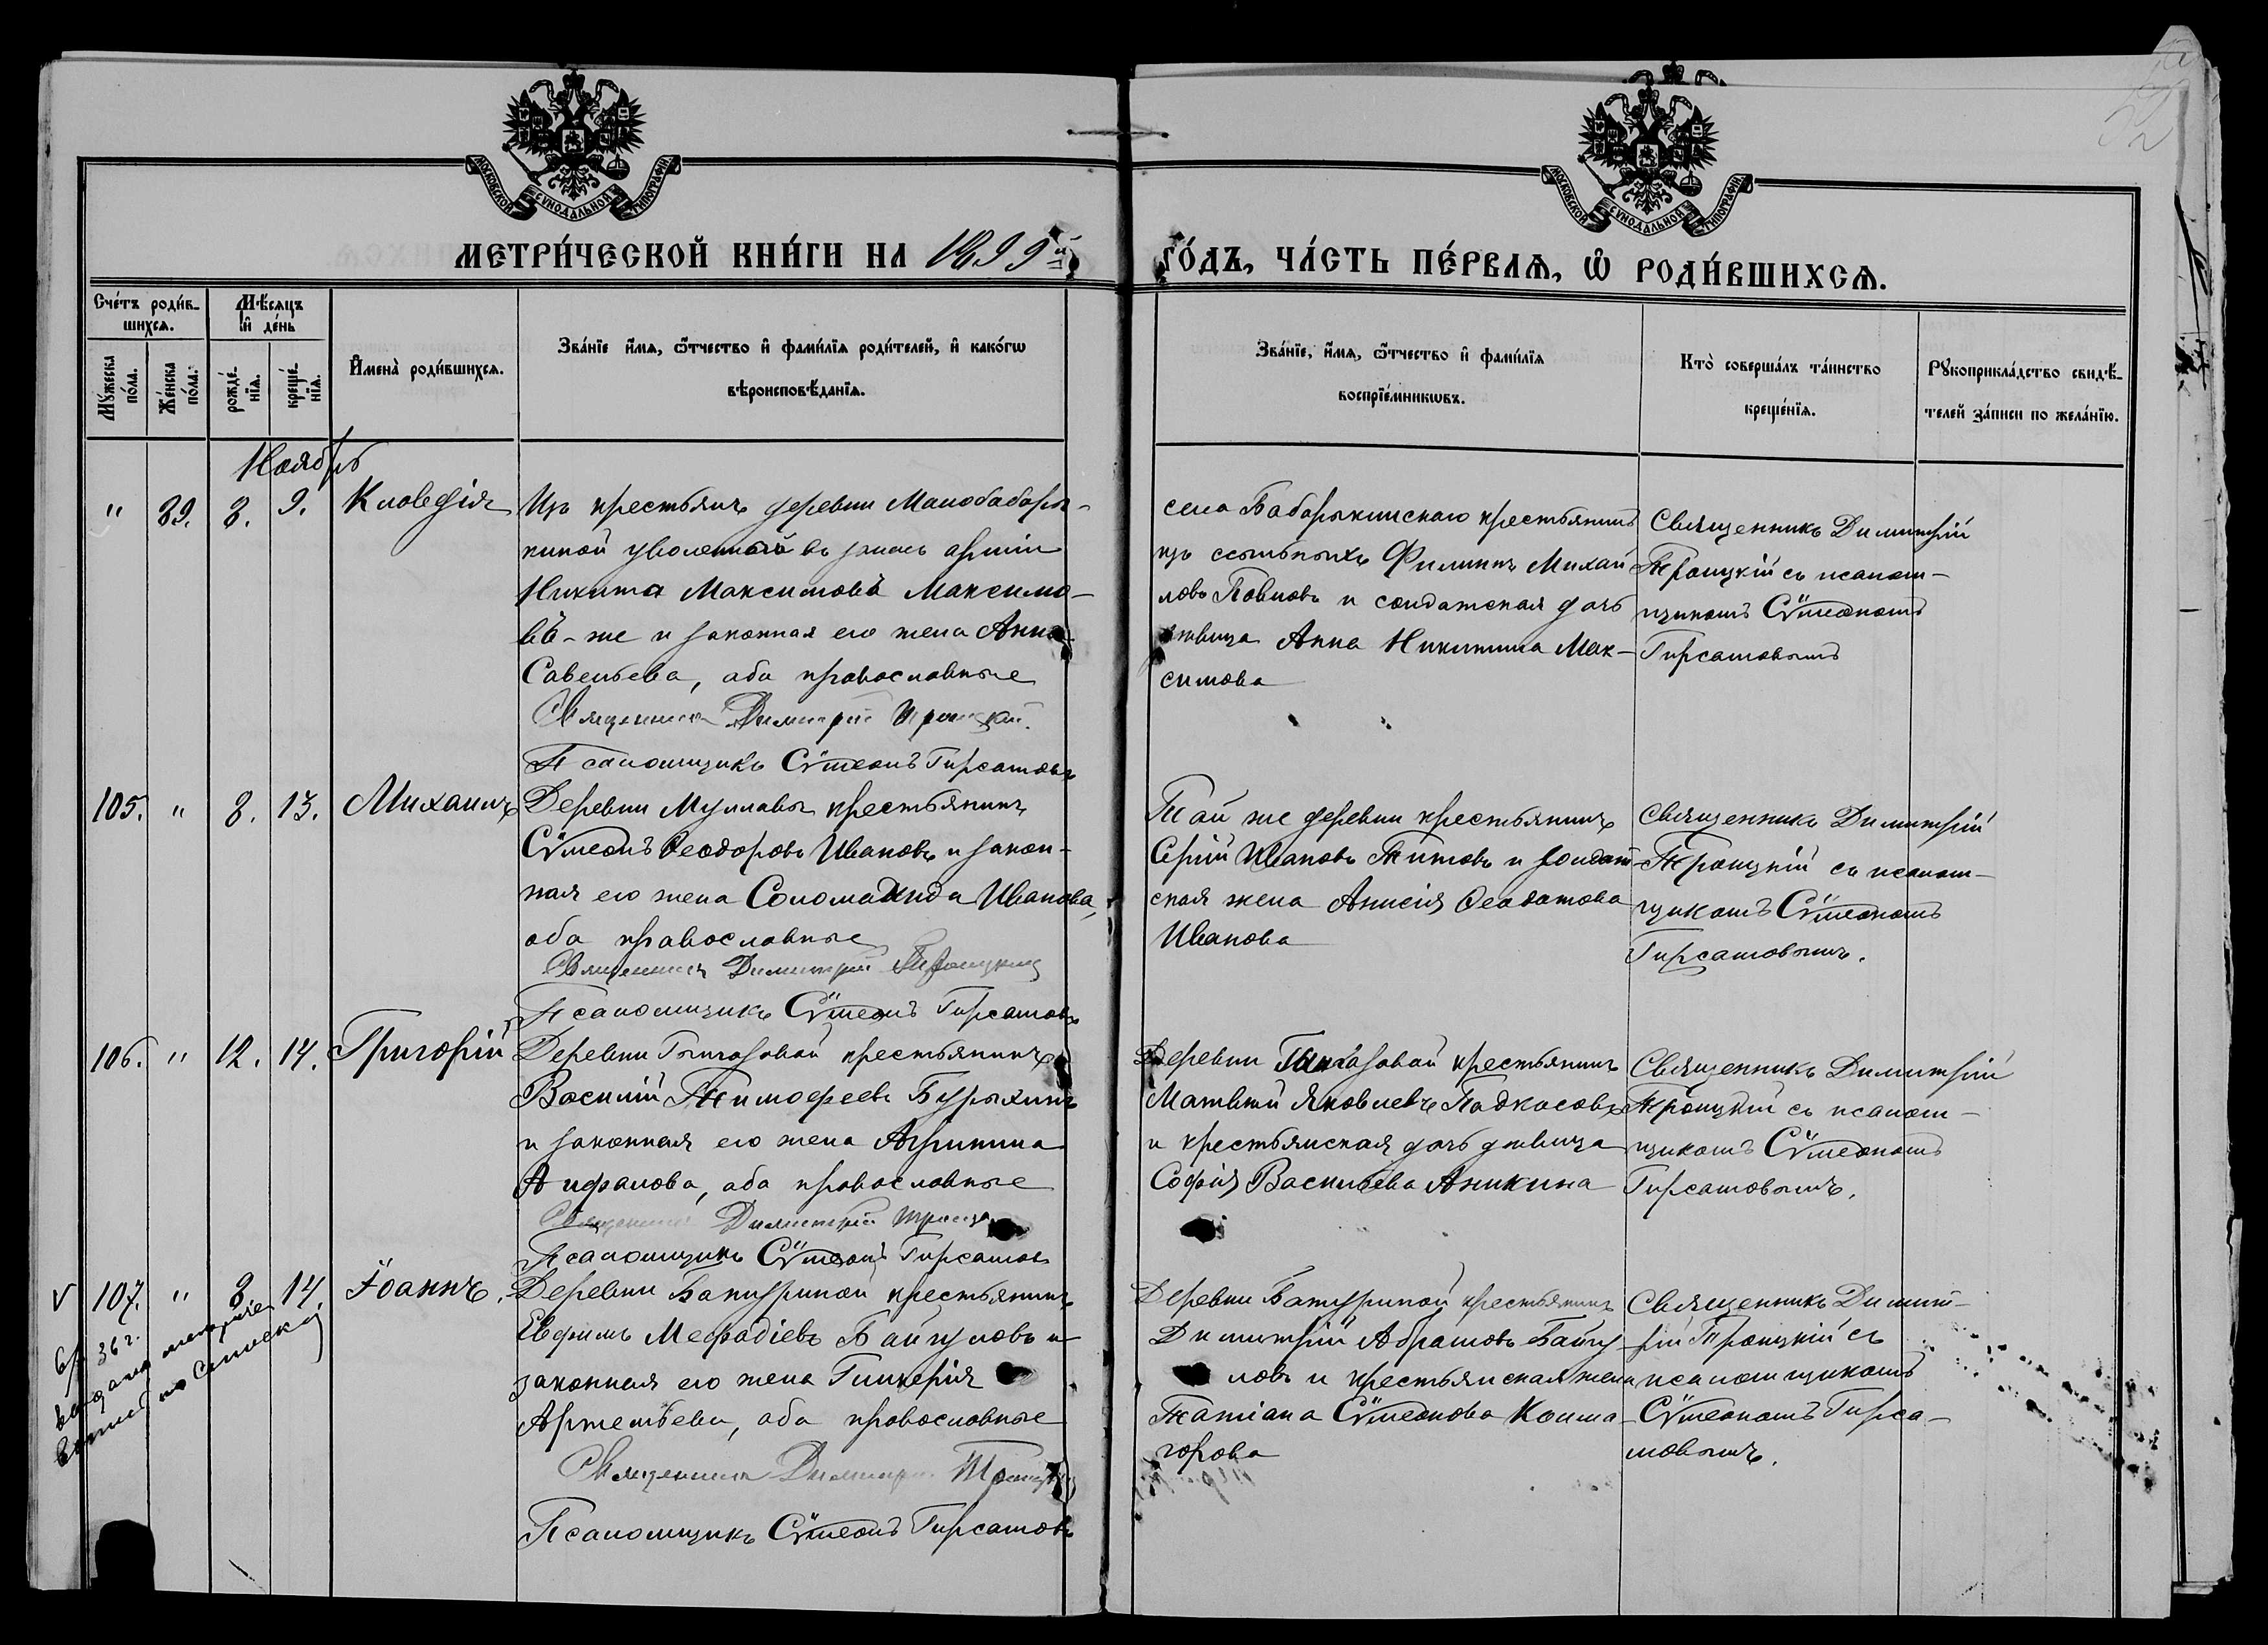 МОСКОВСКОЙ СѴНОДАЛЬНОЙ ТИПОГРАФІИ
МОСКОВСКОЙ СѴНОДАЛЬНОЙ ТИПОГРАФІИ
МЕТРИ́ЧЕСКОЙ КНИ́ГИ НА 1899й
ГО́ДЪ, ЧА́СТЬ ПЕ́РВАѦ, Ѽ РОДИ́ВШИХСѦ.
Сче́тъ роди́в-
шихсѧ.
Мѣ́сѧцъ
и҆ де́нь
Мꙋ́жеска по́ла.
Же́нска по́ла.
рожде́-нїѧ.
креще́-нїѧ.
И҆мена̀ роди́вшихсѧ.
Зва́нїе и҆́мѧ, ѻ҆́тчество и҆ фами́лїѧ роди́телей, и҆ како́гѡ
вѣроисповѣ́данїѧ.
Зва́нїе, и҆́мѧ, ѻ҆́тчество и҆ фами́лїѧ
воспрїе́мникѡвъ.
Кто̀ соверша́лъ та́инство
креще́нїѧ.
Рꙋкоприкла́дство свидѣ́-
телей за́писи по жела́нїю.
Ноябрь
" 89. 8. 9. Клавдія
Изъ крестьянъ деревни Малобабары-
киной уволенный въ запасъ арміи
Никита Максимовъ Максимо-
въ-же и законная его жена Анна
Савельева, оба православные
Священникъ Димитрій Троицкій.
Псаломщикъ Сѵмеонъ Гирсамовъ
села Бабарыкинскаго крестьянинъ
изъ ссыльныхъ Филиппъ Михай
ловъ Павловъ и солдатская дочь
дѣвица Анна Никитина Мак-
симова
Священникъ Димитрій
Троицкій съ псалом-
щикомъ Сѵмеономъ
Гирсамовымъ
105. " 8. 13. Михаилъ
Деревни Муллавы крестьянинъ
Сѵмеонъ Ѳеодоровъ Ивановъ и закон-
ная его жена Соломанида Иванова,
оба православные
Священникъ Димитрій Троицкій
Псаломщикъ Сѵмеонъ Гирсамовъ
Той же деревни крестьянинъ
Сергій Ивановъ Титовъ и солдат-
ская жена Анисія Иванова
Священникъ Димитрій
Троицкій съ псалом-
щикомъ Сѵмеономъ
Гирсамовымъ.
106. " 12. 14. Григорій
Деревни крестьянинъ
Василій Тимофеевъ Бурыхинъ
и законная его жена Агрипина
оба православные
Священникъ Димитрій Троицк
Псаломщикъ Сѵмеонъ Гирсамовъ
Деревни крестьянинъ
Матвѣй Яковлевъ Падкасовъ
и крестьянская дочь дѣвица
Софія Васильева Аникина
Священникъ Димитрій
Троицкій съ псалом-
щикомъ Сѵмеономъ
Гирсамовымъ.
V 107. " 8. 14. Іоаннъ.
36 г.
выдана метриче
выпис по списку
Деревни Батуриной крестьянинъ
Евфимъ Мефодіевъ Байгуловъ и
законная его жена Гликерія
Артемьева, оба православные
Священникъ Димитрій Троицкій
Псаломщикъ Сѵмеонъ Гирсамовъ
Деревни Батуриной крестьянинъ
Димитрій Абрамовъ Байгу-
ловъ и крестьянская жена
Татіана Сѵмеонова Колма-
горова
Священникъ Димит-
рій Троицкій съ
псаломщикомъ
Сѵмеономъ Гирса-
мовымъ.